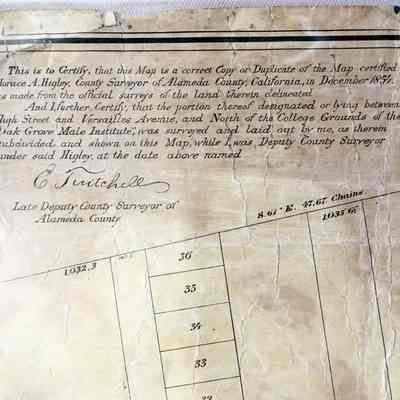 This is to Certify, that this Map is a correct Copy or Duplicate of the Map certified
Horace A. Higley, County Surveyor of Alameda County, California, in December 1857.
as made from the official surveys of the land therein delineated
And I, further, Certify, that the portion thereof designated or lying between
High Street and Versailles Avenue, and North of the College Grounds of the
Oak Grove Male Institute, was surveyed and laid out by me, as therein
subdivided and shown on this Map, while I, was, Deputy County Surveyor
under said Higley, at the date above named
E Twitchell
Late Deputy County Surveyor of
Alameda County
S. 61° E. 47.67 Chains
1032.3
1035.6
36
35
34
33
32